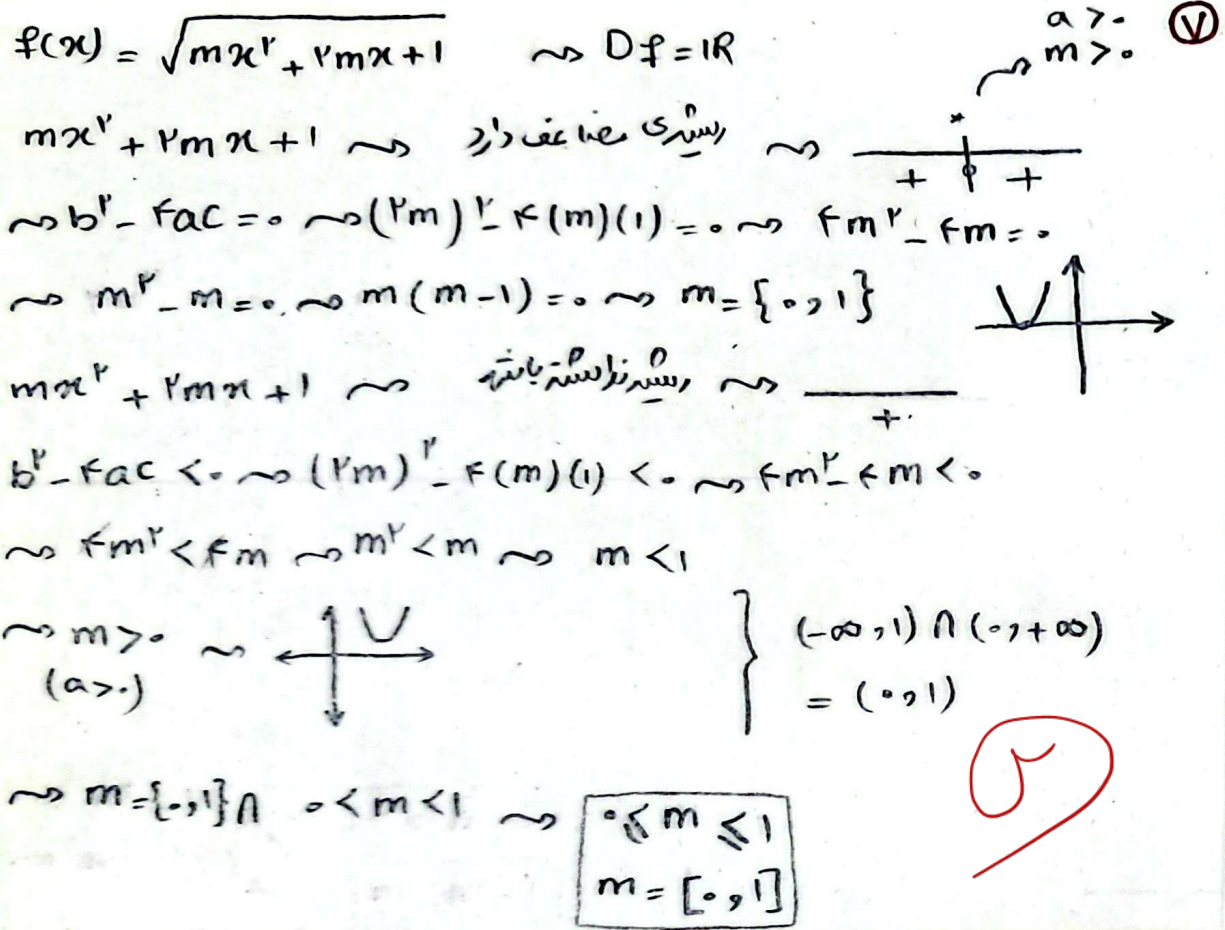 ۷
f(x) = √(mx² + ۲mx + ۱) ⇝ Df = IR ⇝ a > ۰
m > ۰
mx² + ۲mx + ۱ ⇝ ریشه‌ی مضاعف دارد ⇝ + ۰ +
⇝ b² - ۴ac = ۰ ⇝ (۲m)² - ۴(m)(۱) = ۰ ⇝ ۴m² - ۴m = ۰
⇝ m² - m = ۰ ⇝ m(m - ۱) = ۰ ⇝ m = {۰, ۱}
mx² + ۲mx + ۱ ⇝ ریشه نداشته باشد ⇝ +
b² - ۴ac < ۰ ⇝ (۲m)² - ۴(m)(۱) < ۰ ⇝ ۴m² - ۴m < ۰
⇝ ۴m² < ۴m ⇝ m² < m ⇝ m < ۱
⇝ m > ۰ ⇝
(a > ۰)
} (-∞, ۱) ∩ (۰, +∞)
= (۰, ۱)
⇝ m = {۰, ۱} ∩ ۰ < m < ۱ ⇝ ۰ ≤ m ≤ ۱
m = [۰, ۱]
۲